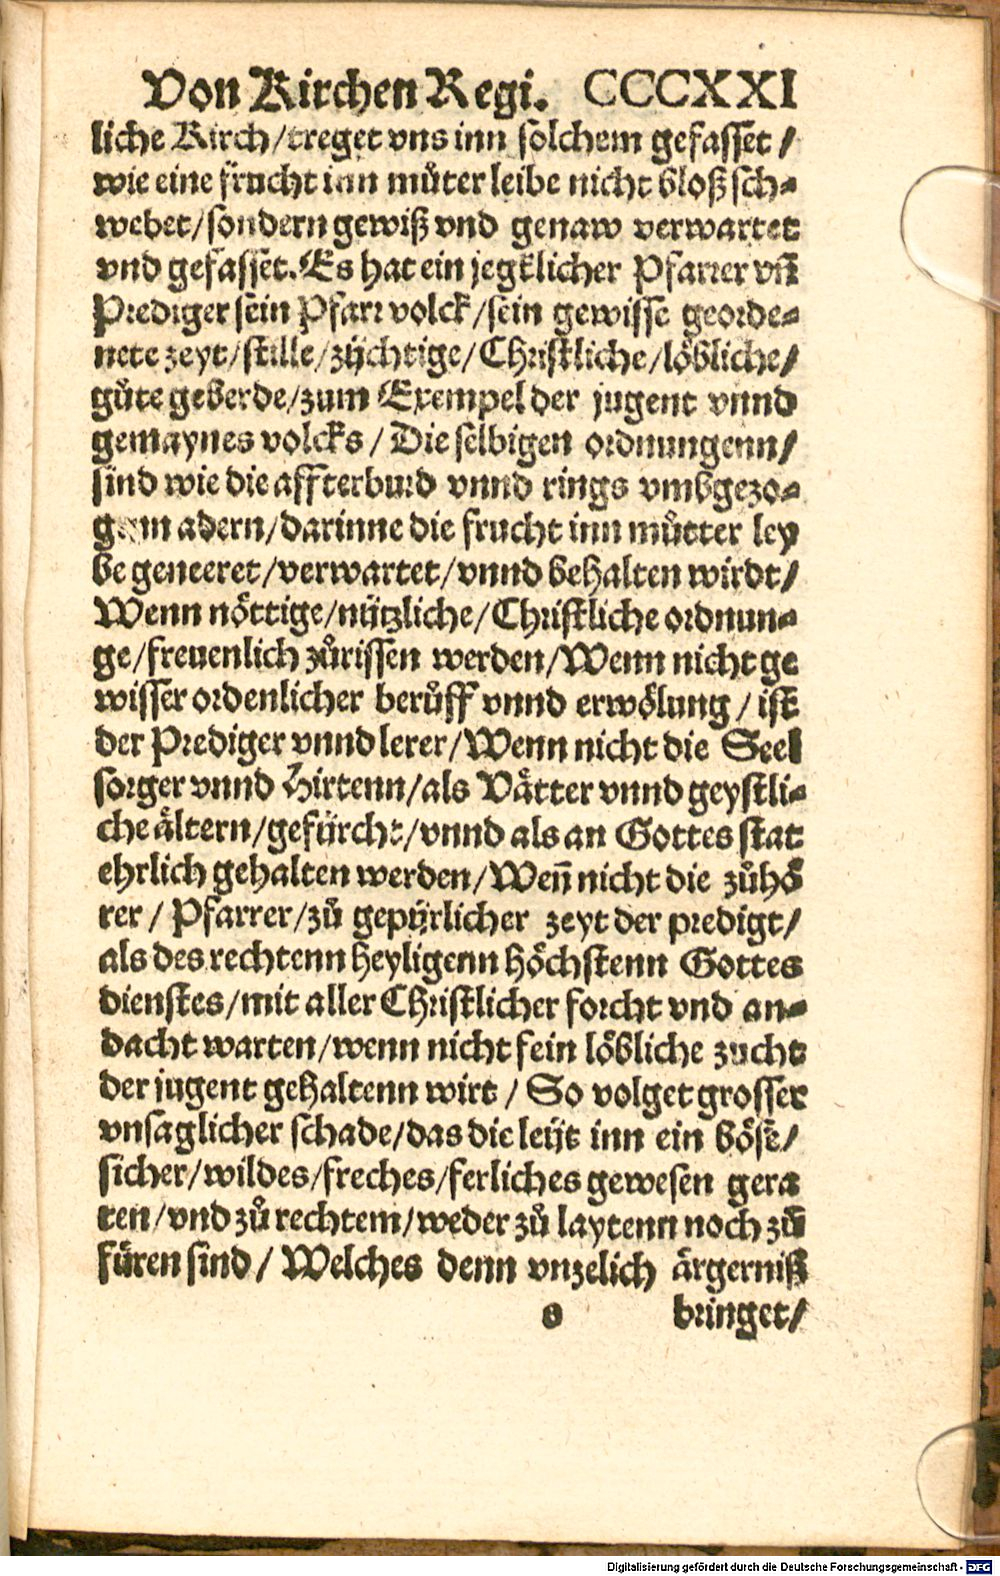 Von Kirchen Regi. CCCXXI
liche Kirch/treget vns inn solchem gefasset/
wie eine frucht inn můter leibe nicht bloß sch-
webet/sondern gewiß vnd genaw verwartet
vnd gefasset. Es hat ein jegklicher Pfarrer vñ
Prediger sein Pfarr volck/sein gewisse georde-
nete zeyt/stille/züchtige/Christliche/löbliche/
gůte geberde/zum Exempel der jugent vnnd
gemaynes volcks/Die selbigen ordnungenn/
sind wie die affterburd vnnd rings vmbgezo-
gem adern/darinne die frucht inn můtter ley
be geneeret/verwartet/vnnd behalten wirdt/
Wenn nöttige/nützliche/Christliche ordnun-
ge/freuenlich zůrissen werden/Wenn nicht ge
wisser ordenlicher berůff vnnd erwölung/ist
der Prediger vnnd lerer/Wenn nicht die Seel
sorger vnnd Hirtenn/als Vätter vnnd geystli-
che ältern/gefürcht/vnnd als an Gottes stat
ehrlich gehalten werden/Weñ nicht die zůhö
rer/Pfarrer/zů gepürlicher zeyt der predigt/
als des rechtenn heyligenn höchstenn Gottes
dienstes/mit aller Christlicher forcht vnd an-
dacht warten/wenn nicht fein löbliche zucht
der jugent gehaltenn wirt/So volget grosser
vnsaglicher schade/das die leüt inn ein böse/
sicher/wildes/freches/ferliches gewesen gera
ten/vnd zů rechtem/weder zů laytenn noch zů
füren sind/Welches denn vnzelich ärgerniß
s bringet/
Digitalisierung gefördert durch die Deutsche Forschungsgemeinschaft - DFG